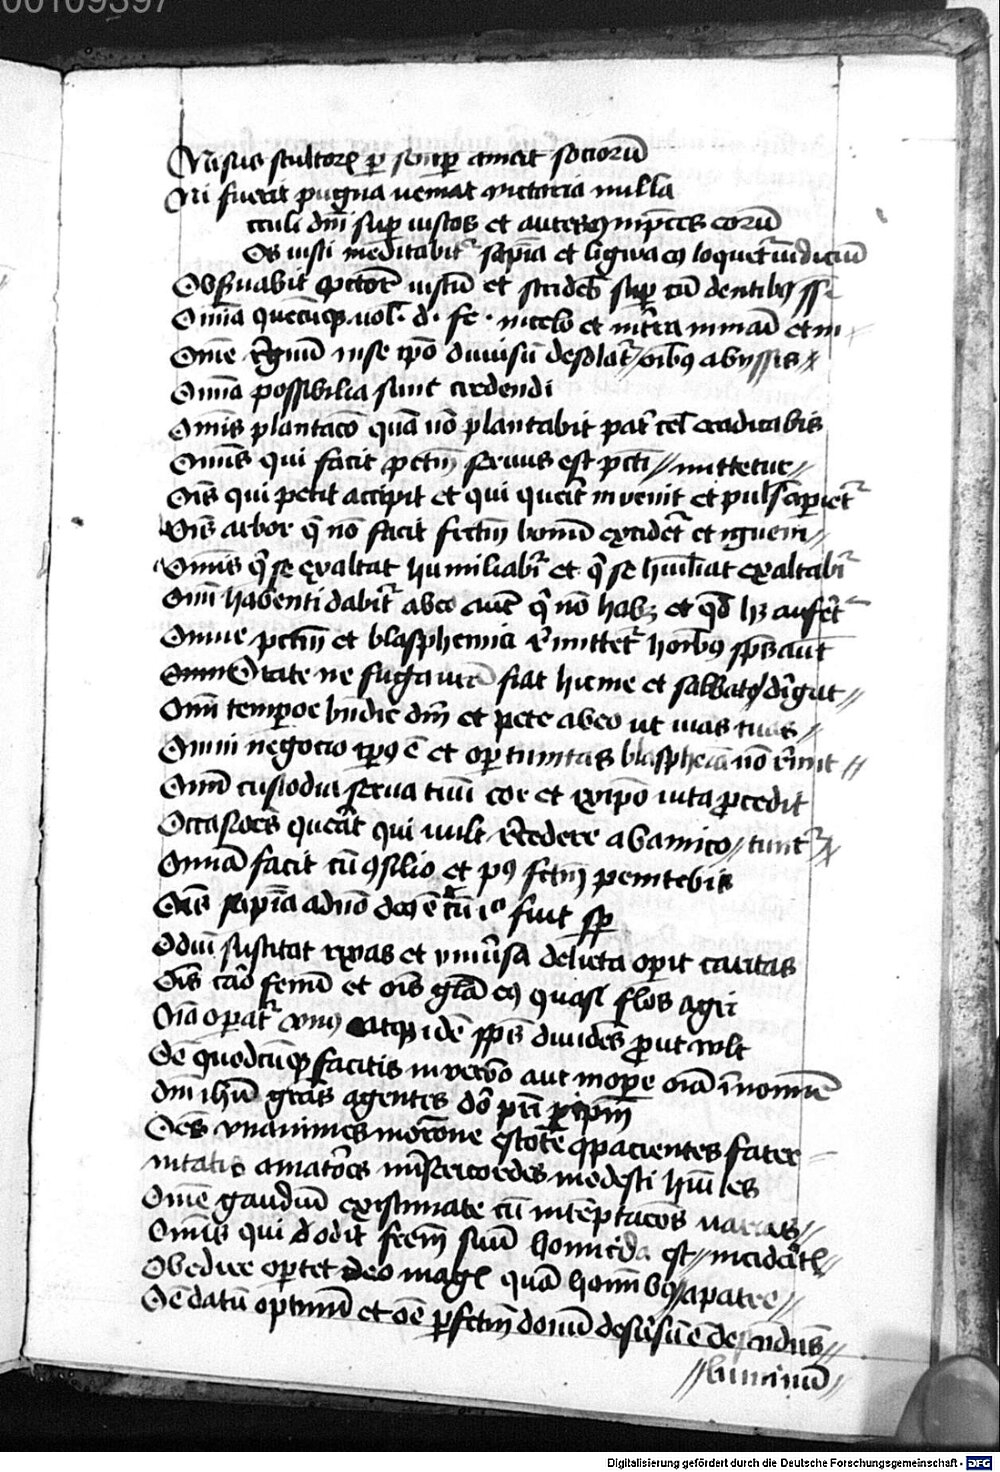 00109397
Nisus stultorum per semper amat sociorum
Ni fuerit pugna veniat victoria nulla
culi dni sup iustos et aures in preces eorum
Os iusti meditabitr sapiam et ligwa eius loquetur iudicium
Observabit peccator iustum et stridebit super eum dentibus
Omnia quecumque vol. d. fe. in celo et in terra in mari et in
Ome regnum in se ipo divisum desolatr // oibus abyssis
Omnia possibilia sunt credendi
Omnis plantaco qua no plantabit patr cel eradicabis
Omnis qui facit pctm servus est pcti // mittetur //
Ois qui petit accipit et qui querit invenit et puls aperietr
Ois arbor q no facit fructm bonum excidetr et ignem //
Omnis q se exaltat humiliabir et q se humiliat exaltabir
Omi habenti dabitr ab eo aut q no habz et qd hz aufertr
Omne pctm et blasphemia remittetr hoibus sps aut
Orate ne fuga vra fiat hieme et sabbato // dirigat //
Omi tempore bndic dm et pete ab eo ut vias tuas //
Omni negocio tps e et oportunitas blasphemia no remit //
Omi custodia serva tuum cor et ex ipo vita procedit
Occasioes querit qui vult recedere ab amico // tunt
Omnia facit cu consilio et post fctm penitebis
Ois sapia a dno deo e et cum io fuit sp
Odium suscitat rixas et universa delicta operit caritas
Ois caro fenum et ois gloa eius quasi flos agri
Oia operatr unus atque ide sps dividens prout wlt
Oe quodcumque facitis in verbo aut in opere oia in nomine
dni ihu gras agentes do pri per ipm
Oes unanimes in orone estote compacientes frater
nitatis amatores misericordes modesti humiles
Ome gaudium existimate cu in temptacoes varias //
Omnis qui odit frem suum homicida est // incidertis //
Obedire oportet deo magis quam hominibus // a patre //
Oe datum optimum et oe perfctm donum desursum e descendens //
// luminum //
Digitalisierung gefördert durch die Deutsche Forschungsgemeinschaft - DFG